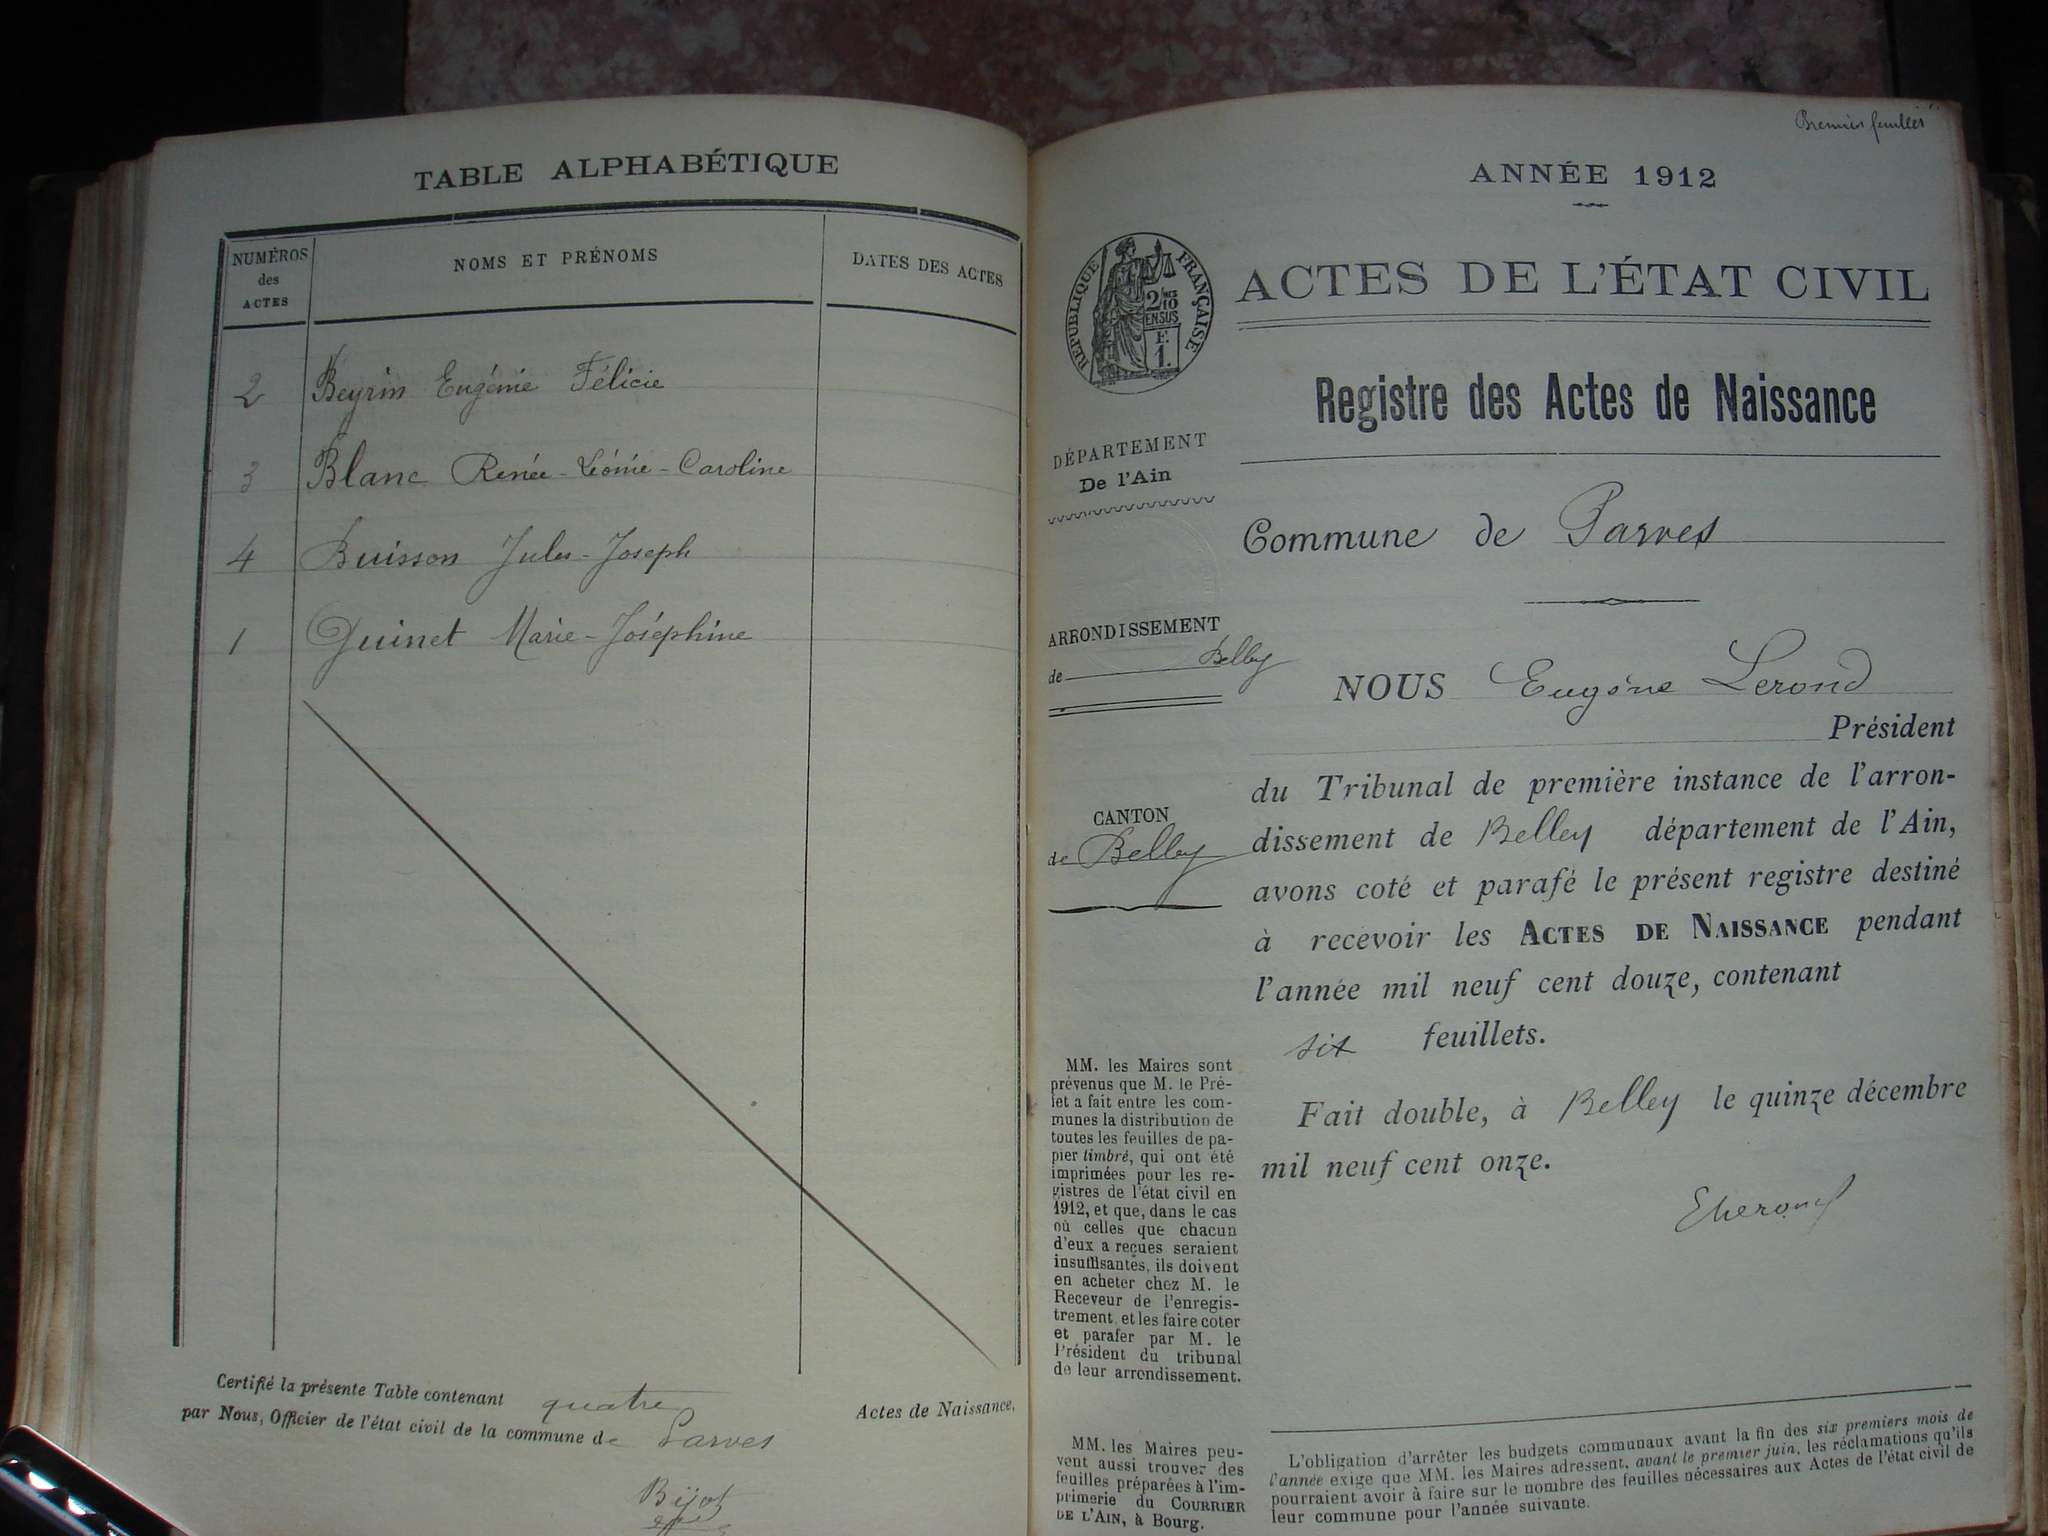 TABLE ALPHABÉTIQUE
NUMÉROS
des
ACTES
NOMS ET PRÉNOMS
DATES DES ACTES
2 Beyrin Eugénie Félicie
3 Blanc Renée-Léonie-Caroline
4 Buisson Jules-Joseph
1 Guinet Marie-Joséphine
Certifié la présente Table contenant quatre Actes de Naissance,
par Nous, Officier de l'état civil de la commune de Parves
Premier feuillet
ANNÉE 1912
RÉPUBLIQUE FRANÇAISE
2/10
EN SUS
1.
ACTES DE L'ÉTAT CIVIL
Registre des Actes de Naissance
DÉPARTEMENT
De l'Ain
Commune de Parves
ARRONDISSEMENT
de Belley
CANTON
de Belley
NOUS Eugène Lerond
Président
du Tribunal de première instance de l'arron-
dissement de Belley département de l'Ain,
avons coté et parafé le présent registre destiné
à recevoir les ACTES DE NAISSANCE pendant
l'année mil neuf cent douze, contenant
six feuillets.
Fait double, à Belley le quinze décembre
mil neuf cent onze.
MM. les Maires sont
prévenus que M. le Pré-
fet a fait entre les com-
munes la distribution de
toutes les feuilles de pa-
pier timbré, qui ont été
imprimées pour les re-
gistres de l'état civil en
1912, et que, dans le cas
où celles que chacun
d'eux a reçues seraient
insuffisantes, ils doivent
en acheter chez M. le
Receveur de l'enregis-
trement, et les faire coter
et parafer par M. le
Président du tribunal
de leur arrondissement.
MM. les Maires peu-
vent aussi trouver des
feuilles préparées à l'im-
primerie du COURRIER
DE L'AIN, à Bourg.
L'obligation d'arrêter les budgets communaux avant la fin des six premiers mois de
l'année exige que MM. les Maires adressent, avant le premier juin, les réclamations qu'ils
pourraient avoir à faire sur le nombre des feuilles nécessaires aux Actes de l'état civil de
leur commune pour l'année suivante.